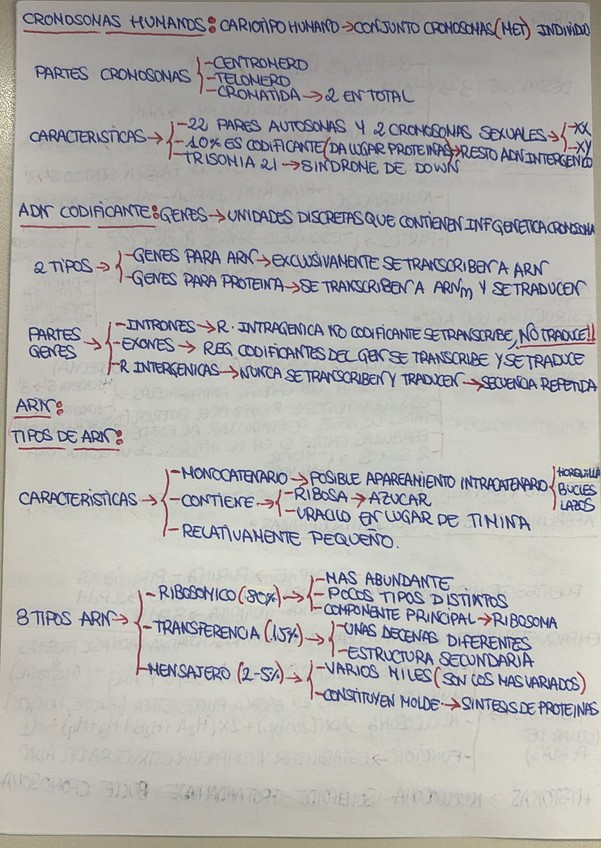 CROMOSOMAS HUMANOS: CARIOTIPO HUMANO → CONJUNTO CROMOSOMAS (MET) INDIVIDUO
PARTES CROMOSOMAS
- CENTROMERO
- TELOMERO
- CROMATIDA → 2 EN TOTAL
CARACTERISTICAS →
- 22 PARES AUTOSOMAS Y 2 CROMOSOMAS SEXUALES → -XX -XY
- 10% ES CODIFICANTE (DA LUGAR PROTEINAS) → RESTO ADN INTERGENICO
TRISOMIA 21 → SINDROME DE DOWN
ADN CODIFICANTE: GENES → UNIDADES DISCRETAS QUE CONTIENEN INF GENETICA CROMOSOMA
2 TIPOS →
- GENES PARA ARN → EXCLUSIVAMENTE SE TRANSCRIBEN A ARN
- GENES PARA PROTEINA → SE TRANSCRIBEN A ARNm Y SE TRADUCEN
PARTES GENES →
- INTRONES → R. INTRAGENICA NO CODIFICANTE SE TRANSCRIBE, NO TRADUCE!!
- EXONES → REG. CODIFICANTES DEL GEN SE TRANSCRIBE Y SE TRADUCE
- R INTERGENICAS → NUNCA SE TRANSCRIBEN Y TRADUCEN → SECUENCIA REPETIDA
ARN:
TIPOS DE ARN:
CARACTERISTICAS →
- MONOCATENARIO → POSIBLE APAREAMIENTO INTRACATENARIO HORQUILLA BUCLES LAZOS
- CONTIENE → - RIBOSA → AZUCAR
- URACILO EN LUGAR DE TIMINA
- RELATIVAMENTE PEQUEÑO.
3 TIPOS ARN →
- RIBOSOMICO (80%) → - MAS ABUNDANTE
- POCOS TIPOS DISTINTOS
- COMPONENTE PRINCIPAL → RIBOSOMA
- TRANSFERENCIA (15%) → - UNAS DECENAS DIFERENTES
- ESTRUCTURA SECUNDARIA
- MENSAJERO (2-5%) → - VARIOS MILES (SON LOS MAS VARIADOS)
- CONSTITUYEN MOLDE → SINTESIS DE PROTEINAS